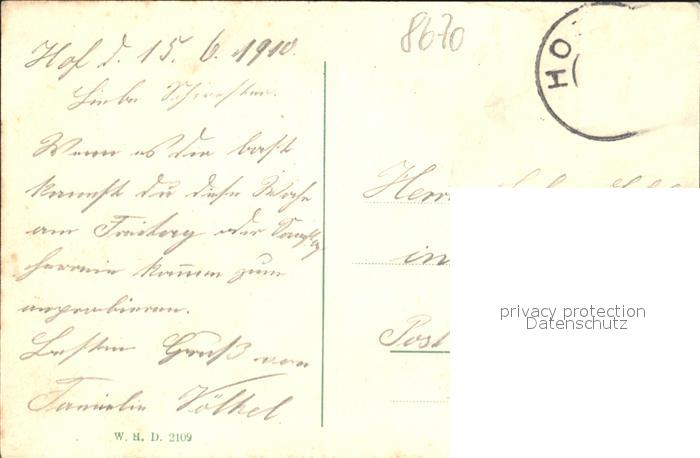 8670
HO
Hof d. 15. 6. 1910.
Liebe Schwester.
Wenn es dir baßt
kannst du diese Woche
am Freitag oder Samstag
herrein kommen zum
anprobieren.
Besten Gruß von
Familie Völkel.
W. H. D. 2109
Herrn
in
Post
privacy protection
Datenschutz